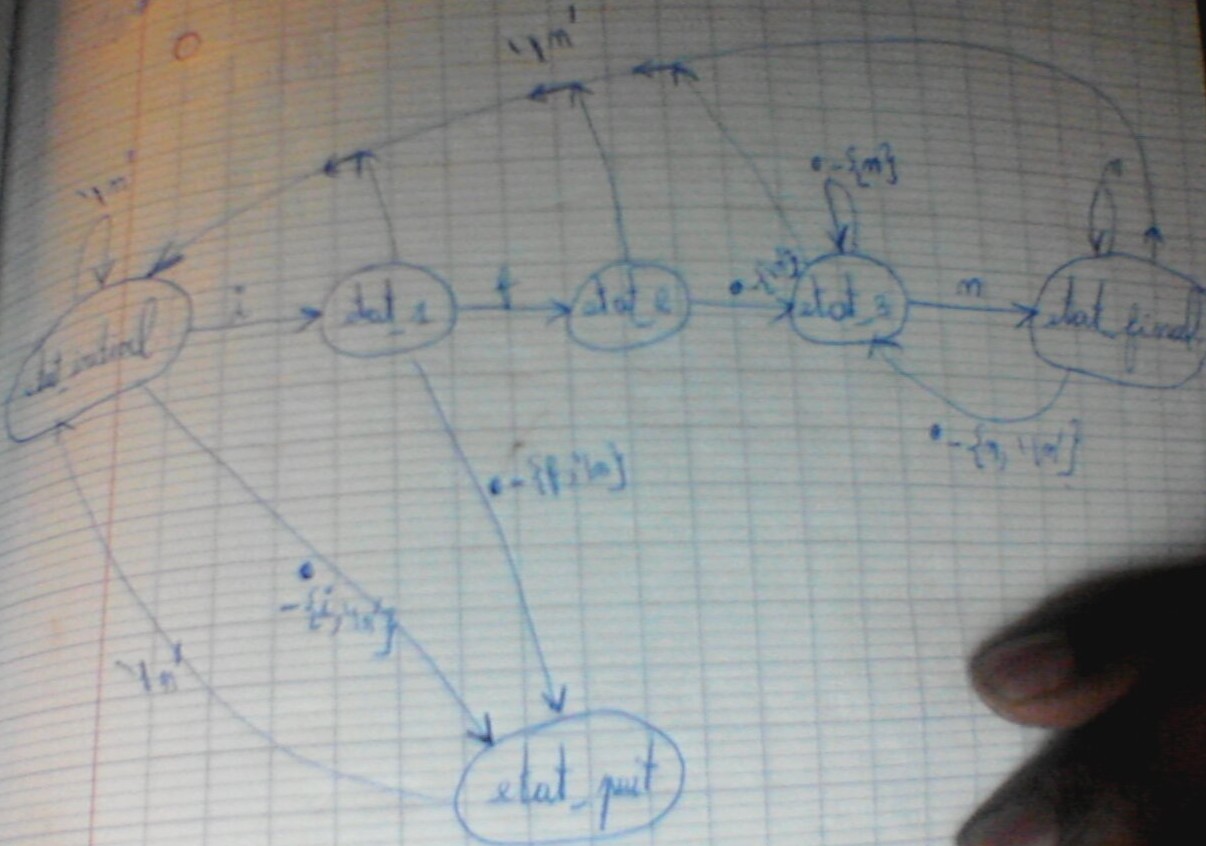 '\n'
'\n'
•-{n}
n
i
f
•-{'\n'}
n
etat_initial
etat_1
etat_2
etat_3
etat_final
•-{n, '\n'}
•-{f, '\n'}
•
-{i, '\n'}
'\n'
etat_puit